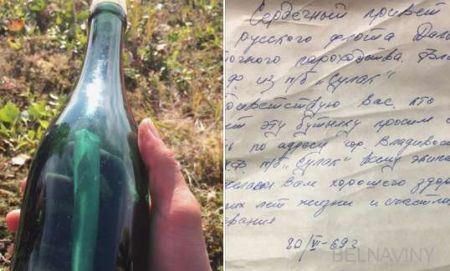 Сердечный привет
русского флота Даль
очного пароходства, Вла
из т/б "Сулак"
ветствую вас, кто
ет эту бутылку просим с
ь по адресу гор. Владивос
т/б "Сулак" всему экипа
Вам хорошего здор
их лет жизни и счастли
вания
20/VI-69г.
BELNAVINY